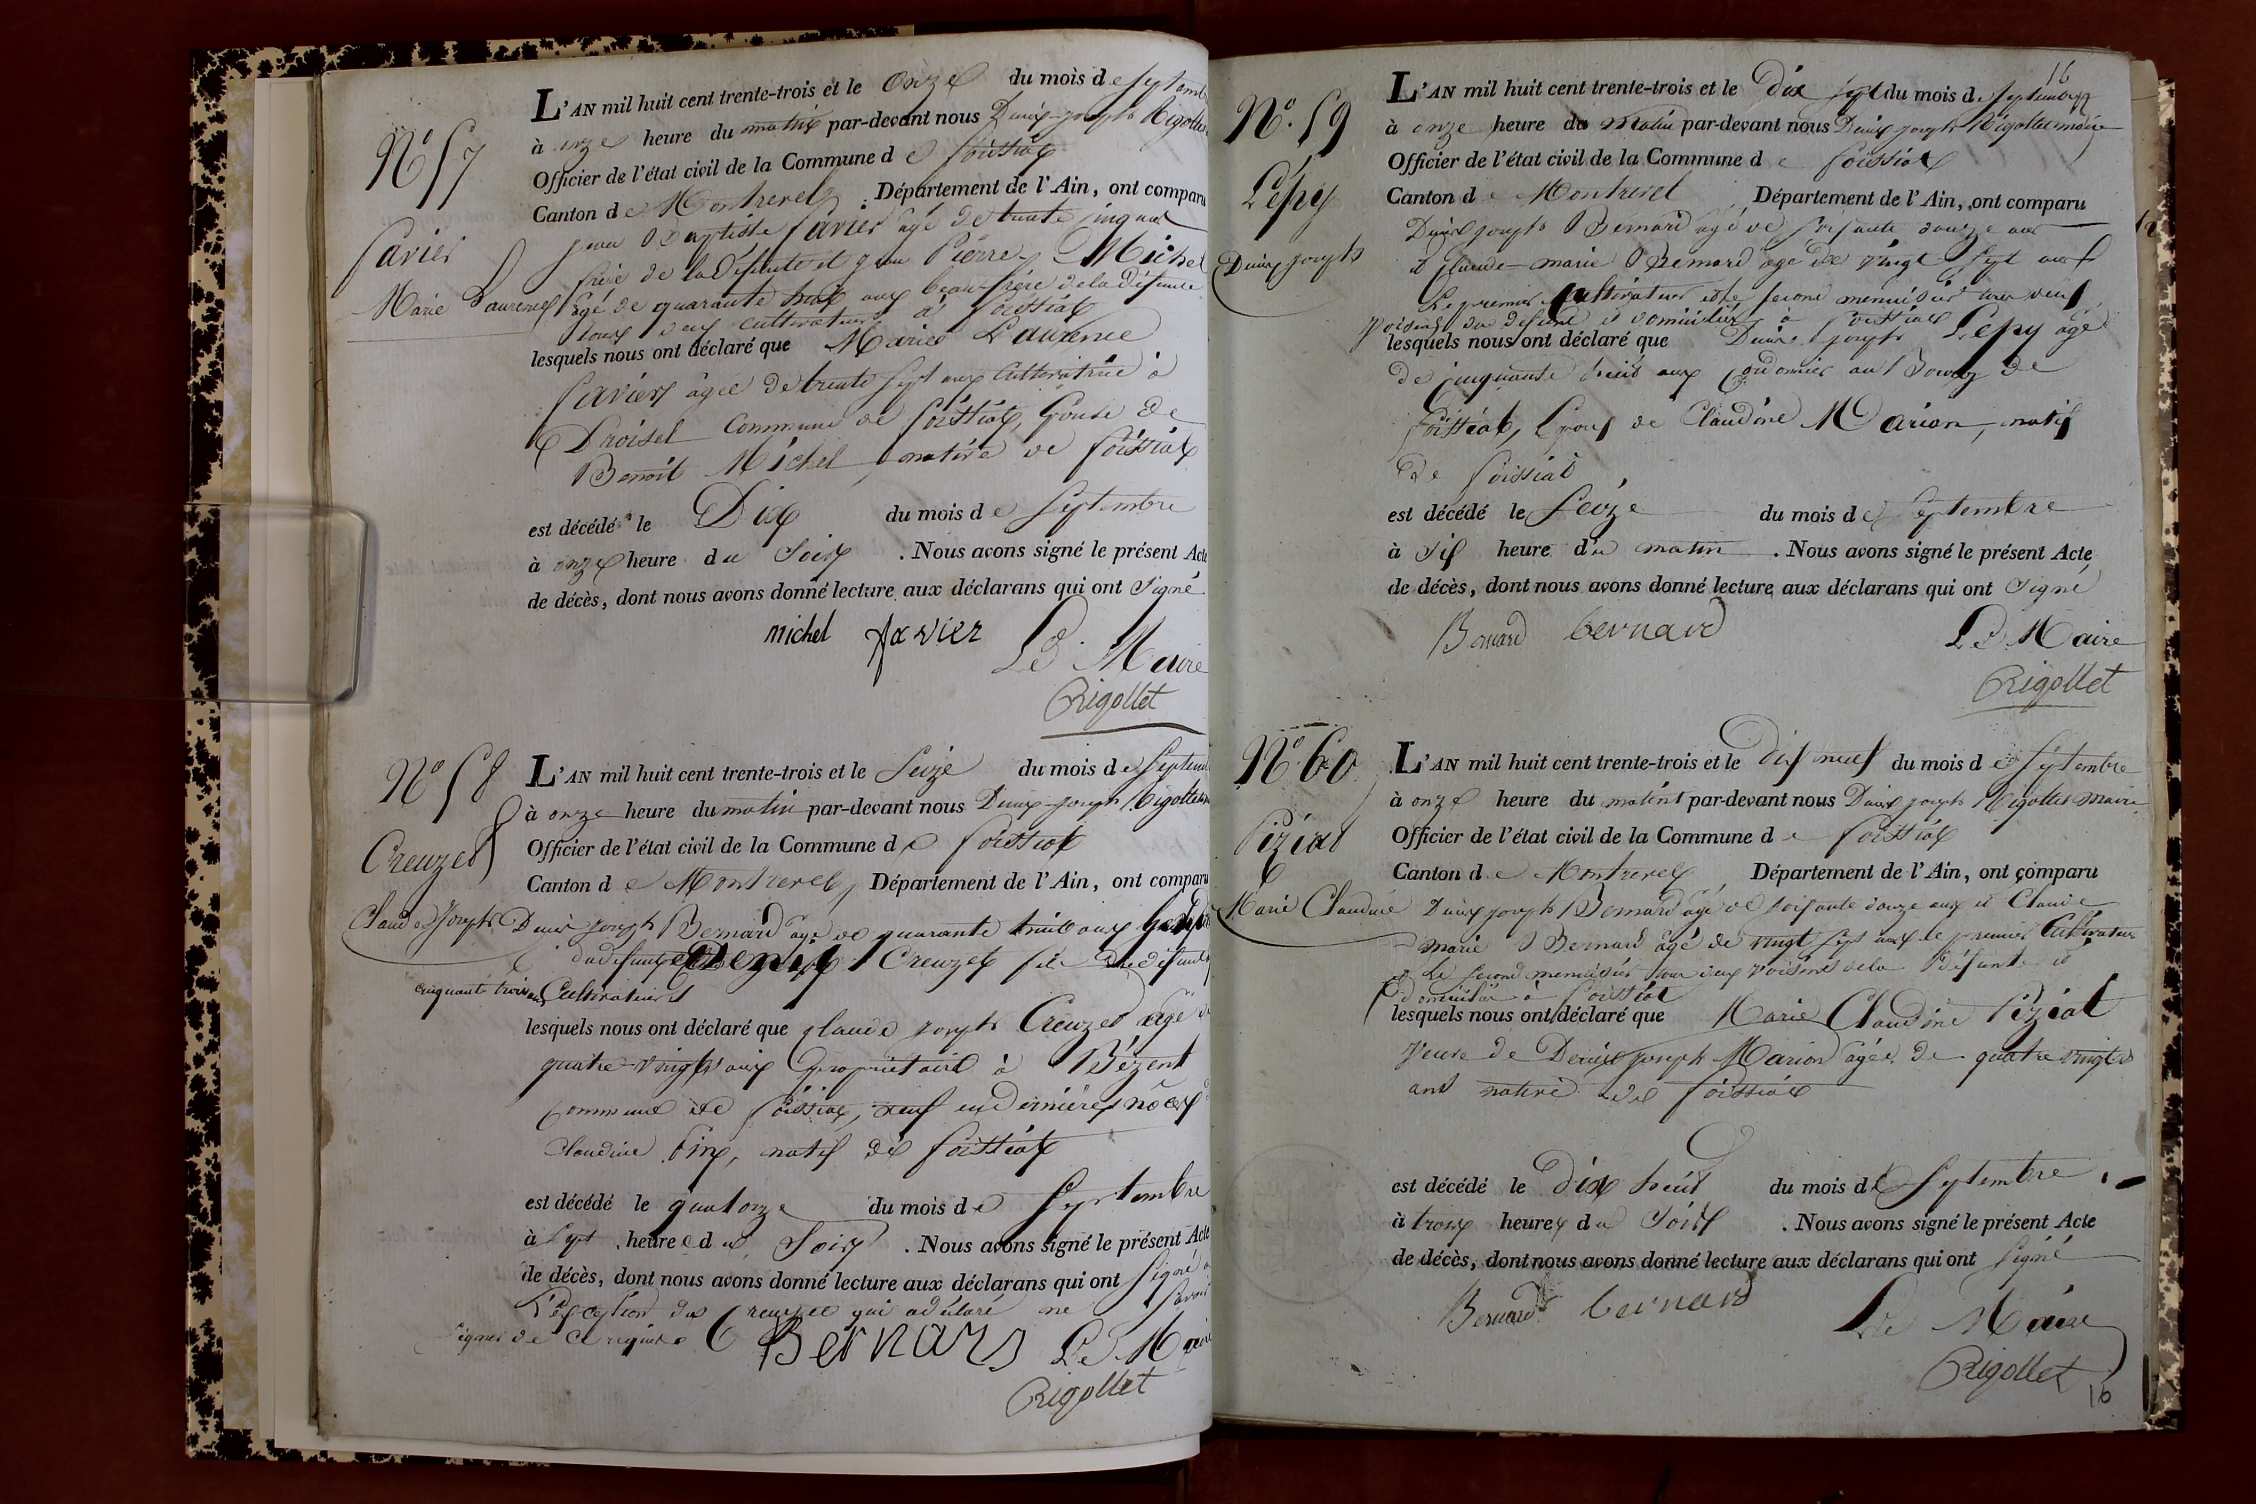 N° 57
Favier
Marie Laurence
L'AN mil huit cent trente-trois et le onze du mois de Septembre
à onze heure du matin par-devant nous Denis-joseph Rigollet
Officier de l'état civil de la Commune de foissiat
Canton de Montrevel, Département de l'Ain, ont comparu
jean Baptiste favier âgé de trente cinq ans
frère de la défunte et jean Pierre Michel
âgé de quarante trois ans beau-frère de la défunte
tous deux cultivateurs à foissiat
lesquels nous ont déclaré que Marie Laurence
favier âgée de trente sept ans Cultivatrice à
commune de foissiat, Epouse de
Benoit Michel, native de foissiat
est décédé le Dix du mois de Septembre
à onze heure du Soir. Nous avons signé le présent Acte
de décès, dont nous avons donné lecture aux déclarans qui ont Signé
michel favier Le Maire
Rigollet
N° 58
Creuzet
Claude Joseph
L'AN mil huit cent trente-trois et le Seize du mois de Septembre
à onze heure du matin par-devant nous Denis-joseph Rigollet
Officier de l'état civil de la Commune de foissiat
Canton de Montrevel, Département de l'Ain, ont comparu
Denis joseph Bernard âgé de quarante huit ans
du défunt et Denis Creuzet fils du défunt
cinquante trois ans Cultivateurs
lesquels nous ont déclaré que Claude joseph Creuzet âgé de
quatre-vingts ans propriétaire à Bézent
commune de foissiat, veuf en dernières nôces de
Claudine Pin, natif de foissiat
est décédé le quatorze du mois de Septembre
à Sept heure du Soir. Nous avons signé le présent Acte
de décès, dont nous avons donné lecture aux déclarans qui ont Signé à
l'exception du Creuzet qui a déclaré ne Savoir
signer de ce requis
Bernard Le Maire
Rigollet
16
N° 59
Lépy
Denis joseph
L'AN mil huit cent trente-trois et le Dix Sept du mois de Septembre
à onze heure du Matin par-devant nous Denis joseph Rigollet maire
Officier de l'état civil de la Commune de foissiat
Canton de Montrevel, Département de l'Ain, ont comparu
Denis joseph Bernard âgé de soisante douze ans
et Claude-marie Bernard âgé de vingt Sept ans
Le premier Cultivateur et le second menuisier tous deux
voisins du défunt et domiciliés à foissiat
lesquels nous ont déclaré que Denis joseph Lépy âgé
de cinquante huit ans Cordonnier au Bourg de
foissiat, Epoux de Claudine Marion, natif
de foissiat
est décédé le Seize du mois de Septembre
à Six heure du matin. Nous avons signé le présent Acte
de décès, dont nous avons donné lecture aux déclarans qui ont Signé
Bernard bernard Le Maire
Rigollet
N° 60
Péziat
Marie Claudine
L'AN mil huit cent trente-trois et le dix neuf du mois de Septembre
à onze heure du matin par-devant nous Denis joseph Rigollet Maire
Officier de l'état civil de la Commune de foissiat
Canton de Montrevel, Département de l'Ain, ont comparu
Denis joseph Bernard âgé de soisante douze ans et Claude
marie Bernard âgé de vingt sept ans le premier Cultivateur
et Le second menuisier tous deux voisins de la Défunte et
domiciliés à foissiat
lesquels nous ont déclaré que Marie Claudine Péziat
veuve de Denis joseph Marion âgée de quatre vingts
ans native de foissiat
est décédé le dix huit du mois de Septembre
à trois heures du Soir. Nous avons signé le présent Acte
de décès, dont nous avons donné lecture aux déclarans qui ont Signé
Bernard bernard Le Maire
Rigollet
16